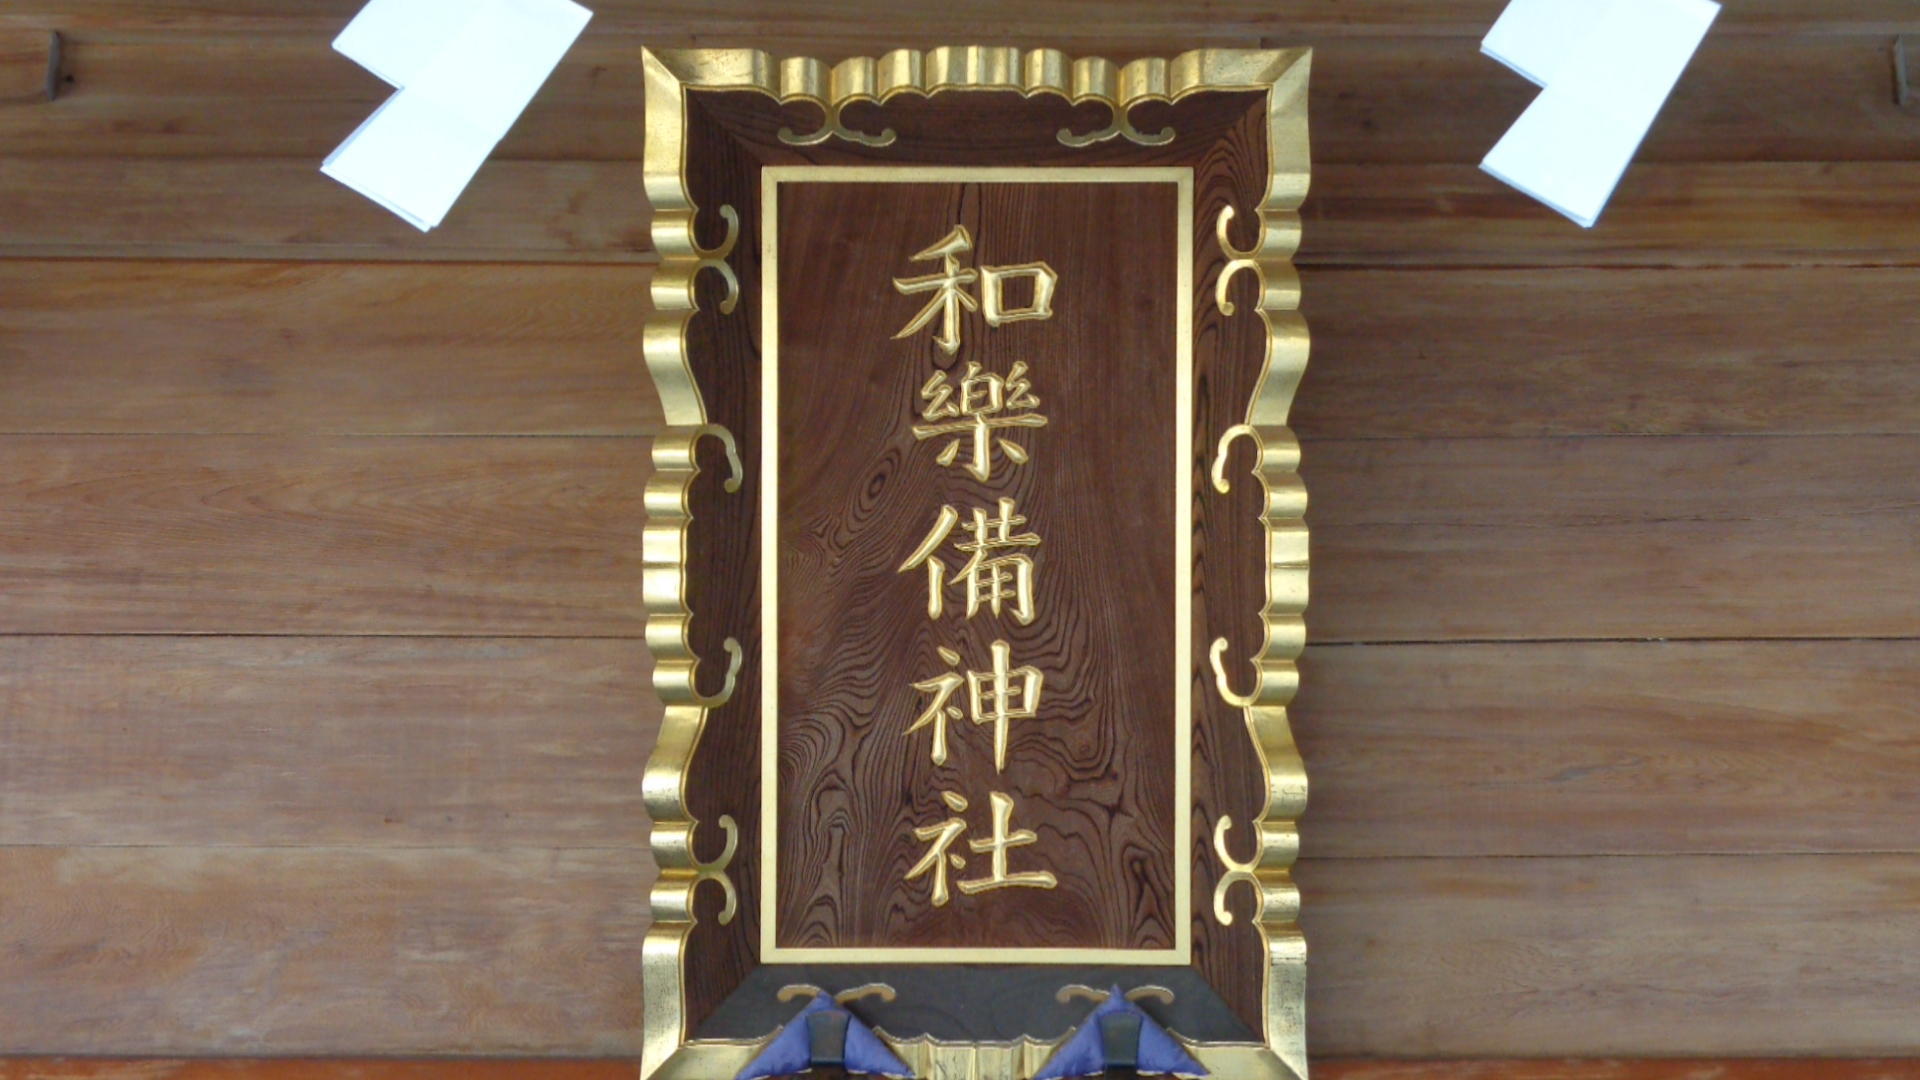 和樂備神社